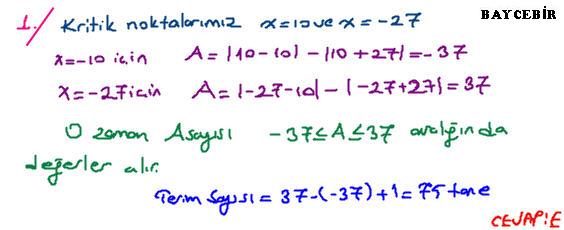 BAYCEBİR
1./ Kritik noktalarımız x=10 ve x=-27
x=-10 için A=|10-10|-|10+27|=-37
x=-27 için A=|-27-10|-|-27+27|=37
O zaman A sayısı -37≤A≤37 aralığında
değerler alır.
Terim Sayısı = 37-(-37)+1=75 tane
CEVAP:E